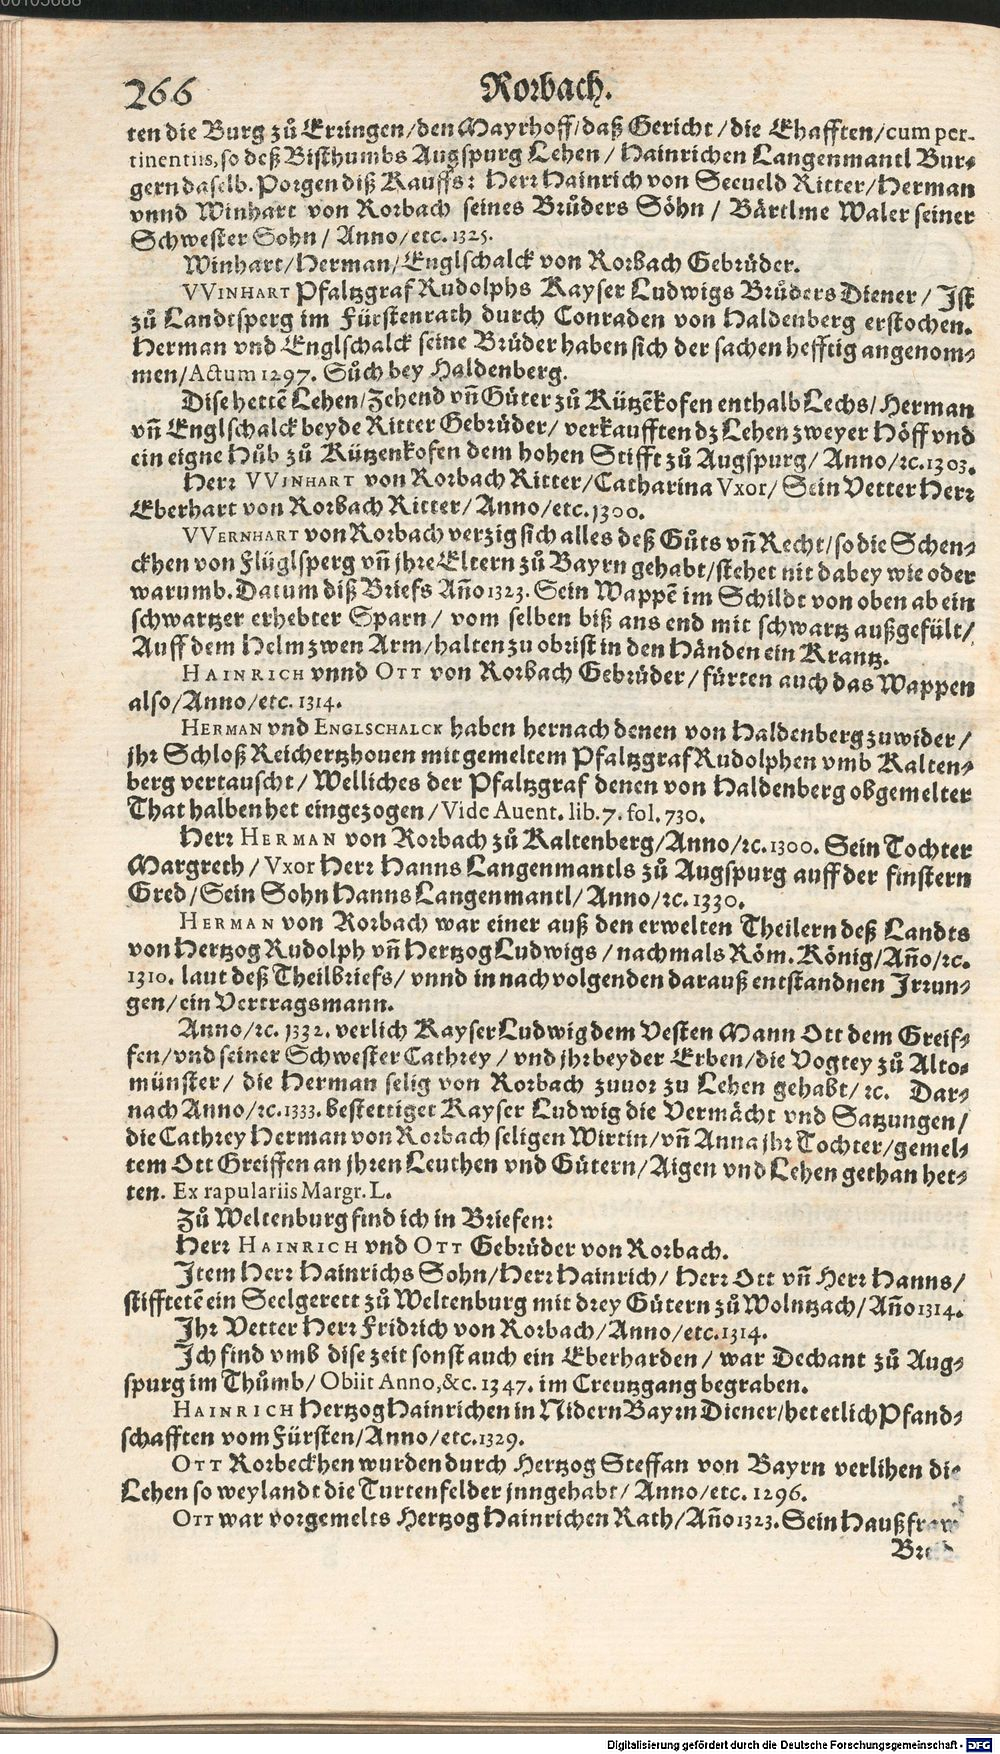 266 Rorbach.
ten die Burg zů Erringen/den Mayrhoff/daß Gericht/die Ehafften/cum per-
tinentiis, so deß Bisthumbs Augspurg Lehen/Hainrichen Langenmantl Bur-
gern daselb. Porgen diß Kauffs: Herr Hainrich von Seeueld Ritter/Herman
vnnd Winhart von Rorbach seines Brůders Söhn/Bärtlme Waler seiner
Schwester Sohn/Anno/etc. 1325.
Winhart/Herman/Englschalck von Rorbach Gebrüder.
VVINHART Pfaltzgraf Rudolphs Kayser Ludwigs Brůders Diener/Ist
zů Landtsperg im Fürstenrath durch Conraden von Haldenberg erstochen.
Herman vnd Englschalck seine Brüder haben sich der sachen hefftig angenom-
men/Actum 1297. Sůch bey Haldenberg.
Dise hettẽ Lehen/Zehend vñ Güter zů Kützẽkofen enthalb Lechs/Herman
vñ Englschalck beyde Ritter Gebrüder/verkaufften dz Lehen zweyer Höff vnd
ein eigne Hůb zů Kützenkofen dem hohen Stifft zů Augspurg/Anno/ꝛc. 1303.
Herr VVINHART von Rorbach Ritter/Catharina Vxor/Sein Vetter Herr
Eberhart von Rorbach Ritter/Anno/etc. 1300.
VVERNHART von Rorbach verzig sich alles deß Gůts vñ Recht/so die Schen-
ckhen von Flüglsperg vñ jhre Eltern zů Bayrn gehabt/stehet nit dabey wie oder
warumb. Datum diß Briefs Año 1323. Sein Wappẽ im Schildt von oben ab ein
schwartzer erhebter Sparn/vom selben biß ans end mit schwartz außgefült/
Auff dem Helm zwen Arm/halten zu obrist in den Händen ein Krantz.
HAINRICH vnnd OTT von Rorbach Gebrüder/fürten auch das Wappen
also/Anno/etc. 1314.
HERMAN vnd ENGLSCHALCK haben hernach denen von Haldenberg zuwider/
jhr Schloß Reichertzhouen mit gemeltem Pfaltzgraf Rudolphen vmb Kalten-
berg vertauscht/Welliches der Pfaltzgraf denen von Haldenberg obgemelter
That halben het eingezogen/Vide Auent. lib. 7. fol. 730.
Herr HERMAN von Rorbach zů Kaltenberg/Anno/ꝛc. 1300. Sein Tochter
Margreth/Vxor Herr Hanns Langenmantls zů Augspurg auff der finstern
Gred/Sein Sohn Hanns Langenmantl/Anno/ꝛc. 1330.
HERMAN von Rorbach war einer auß den erwelten Theilern deß Landts
von Hertzog Rudolph vñ Hertzog Ludwigs/nachmals Röm. König/Año/ꝛc.
1310. laut deß Theilbriefs/vnnd in nachvolgenden darauß entstandnen Irrun-
gen/ein Vertragsmann.
Anno/ꝛc. 1332. verlich Kayser Ludwig dem Vesten Mann Ott dem Greif-
fen/vnd seiner Schwester Cathrey/vnd jhr beyder Erben/die Vogtey zů Alto-
münster/die Herman selig von Rorbach zuuor zu Lehen gehabt/ꝛc. Dar-
nach Anno/ꝛc. 1333. bestettiget Kayser Ludwig die Vermächt vnd Satzungen/
die Cathrey Herman von Rorbach seligen Wirtin/vñ Anna jhr Tochter/gemel-
tem Ott Greiffen an jhren Leuthen vnd Gütern/Aigen vnd Lehen gethan het-
ten. Ex rapulariis Margr. L.
Zů Weltenburg find ich in Briefen:
Herr HAINRICH vnd OTT Gebrüder von Rorbach.
Item Herr Hainrichs Sohn/Herr Hainrich/Herr Ott vñ Herr Hanns/
stifftetẽ ein Seelgerett zů Weltenburg mit drey Gütern zů Wolntzach/Año 1314.
Ihr Vetter Herr Fridrich von Rorbach/Anno/etc. 1314.
Ich find vmb dise zeit sonst auch ein Eberharden/war Dechant zů Aug-
spurg im Thůmb/Obiit Anno, &c. 1347. im Creutzgang begraben.
HAINRICH Hertzog Hainrichen in Nidern Bayrn Diener/het etlich Pfand-
schafften vom Fürsten/Anno/etc. 1329.
OTT Rorbeckhen wurden durch Hertzog Steffan von Bayrn verlihen die
Lehen so weylandt die Turtenfelder jnngehabt/Anno/etc. 1296.
OTT war vorgemelts Hertzog Hainrichen Rath/Año 1323. Sein Haußfraw
Digitalisierung gefördert durch die Deutsche Forschungsgemeinschaft - DFG